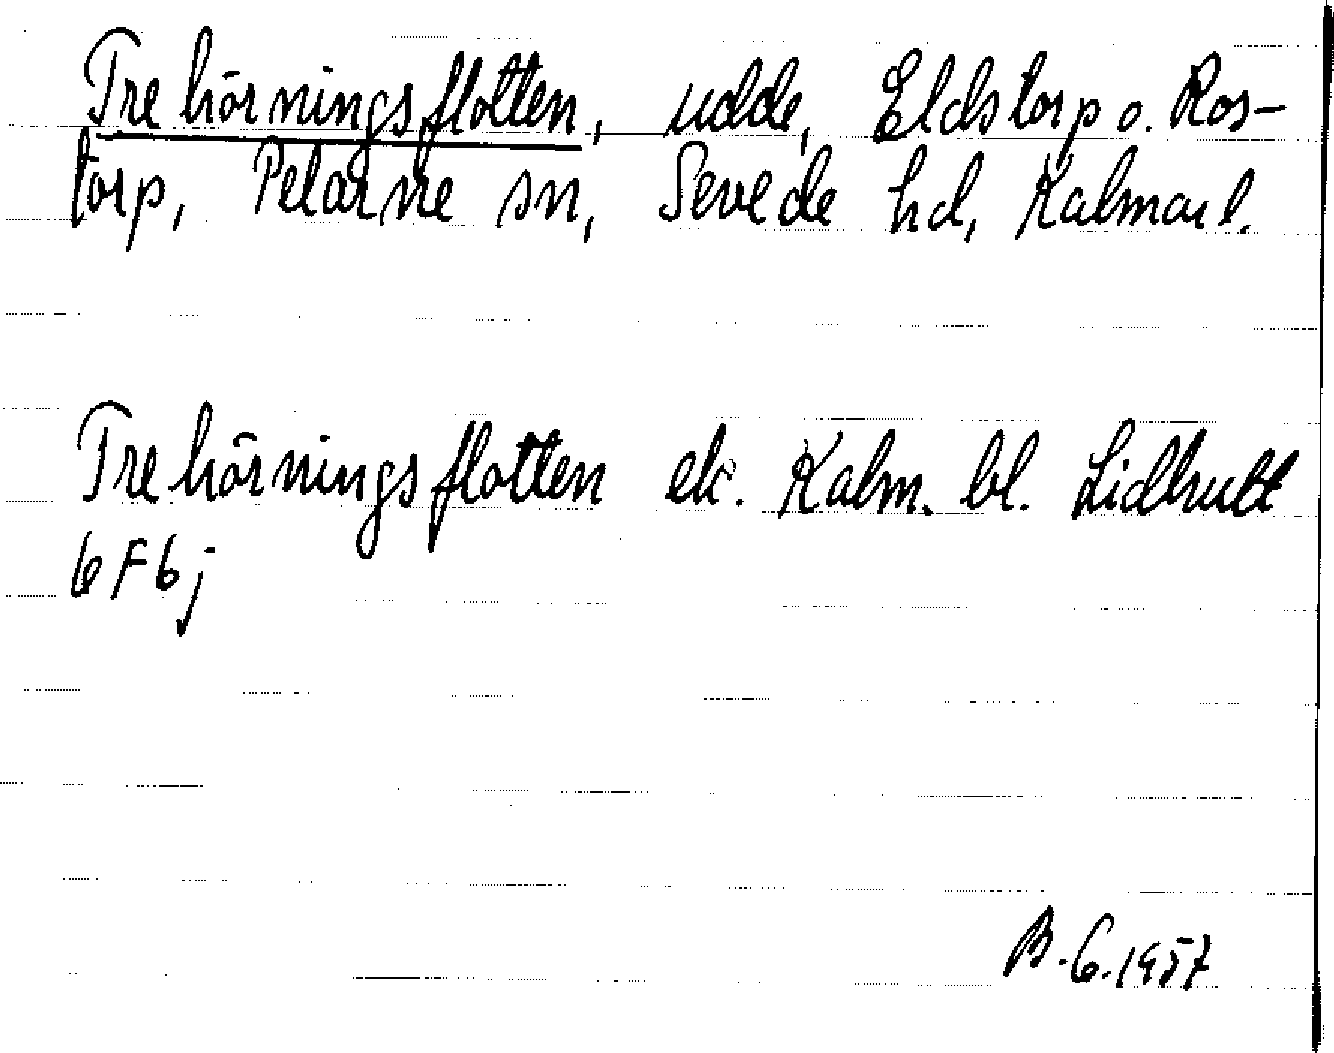 Trehörningsflotten, udde, Eldstorp o. Ros-
torp, Pelarne sn, Sevede hd, Kalmar l.
Trehörningsflotten ek. Kalm. bl. Lidhult
6F6j
B.G.1957